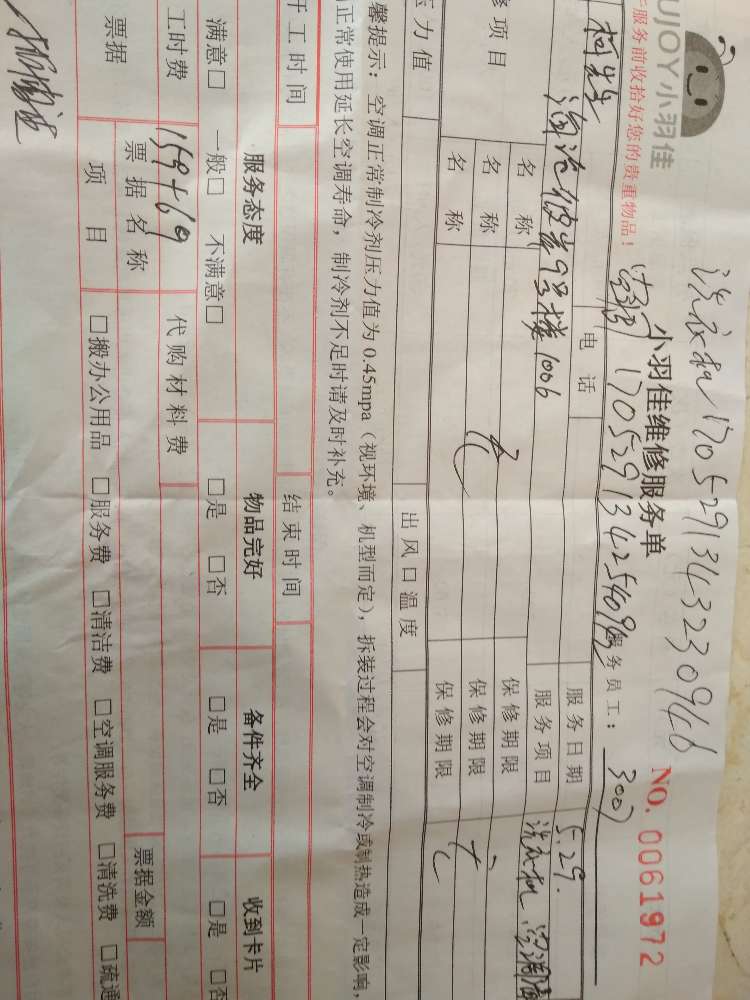 洗衣机 170529134323094b
UJOY小羽佳
小羽佳维修服务单 NO. 0061972
服务前收拾好您的贵重物品!
空调 170529134254093
服务员工: 3007
柯先生 电话 服务日期 5.29.
9号楼1006 服务项目 洗衣机 空调
修项目 名称 保修期限
名称 保修期限
名称 保修期限
压力值 出风口温度
馨提示:空调正常制冷剂压力值为0.45mpa(视环境、机型而定),拆装过程会对空调制冷或制热造成一定影响,
正常使用延长空调寿命,制冷剂不足时请及时补充。
开工时间 结束时间
服务态度 物品完好 备件齐全 收到卡片
满意□ 一般□ 不满意□ □是 □否 □是 □否 □是 □否
工时费 159+69 代购材料费
票据 票据名称 票据金额
项目 □搬办公用品 □服务费 □清洁费 □空调服务费 □清洗费 □疏通